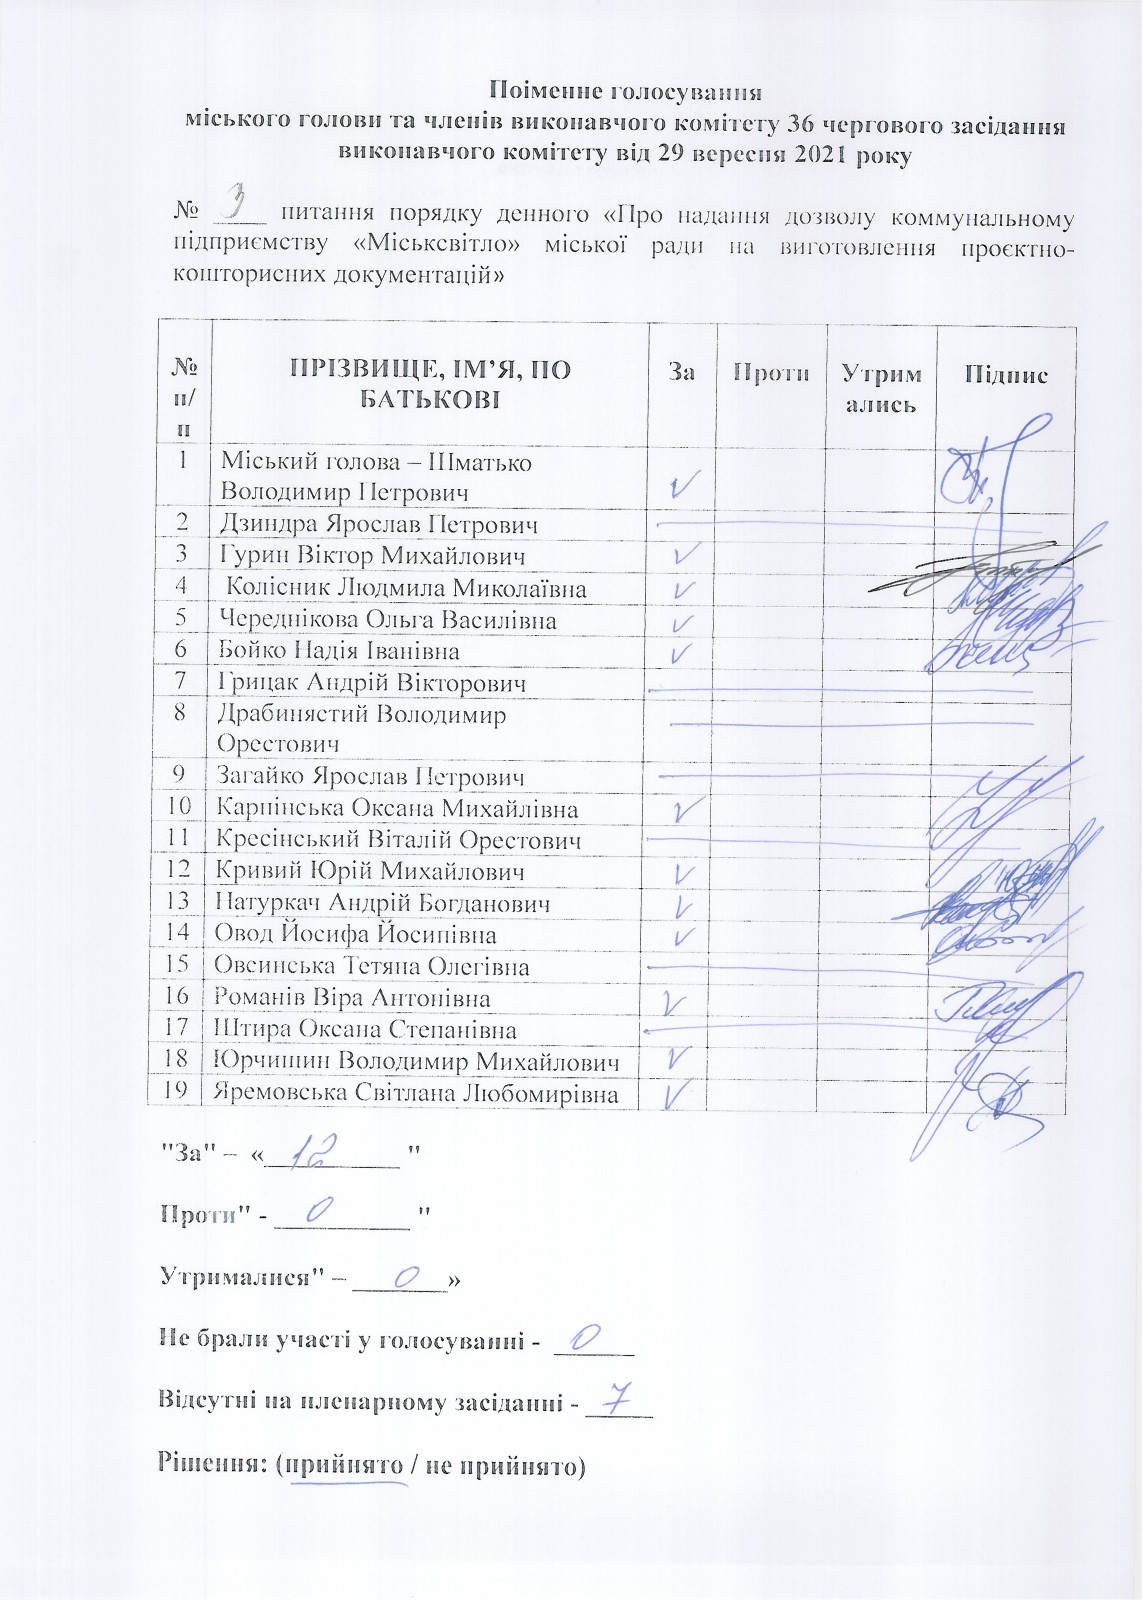 Поіменне голосування
міського голови та членів виконавчого комітету 36 чергового засідання
виконавчого комітету від 29 вересня 2021 року
№ 3 питання порядку денного «Про надання дозволу коммунальному
підприємству «Міськсвітло» міської ради на виготовлення проєктно-
кошторисних документацій»
№ п/п ПРІЗВИЩЕ, ІМ’Я, ПО БАТЬКОВІ За Проти Утримались Підпис
1 Міський голова – Шматько
Володимир Петрович ✓
2 Дзиндра Ярослав Петрович
3 Гурин Віктор Михайлович ✓
4 Колісник Людмила Миколаївна ✓
5 Череднікова Ольга Василівна ✓
6 Бойко Надія Іванівна ✓
7 Грицак Андрій Вікторович
8 Драбинястий Володимир
Орестович
9 Загайко Ярослав Петрович
10 Карпінська Оксана Михайлівна ✓
11 Кресінський Віталій Орестович
12 Кривий Юрій Михайлович ✓
13 Натуркач Андрій Богданович ✓
14 Овод Йосифа Йосипівна ✓
15 Овсинська Тетяна Олегівна
16 Романів Віра Антонівна ✓
17 Штира Оксана Степанівна
18 Юрчишин Володимир Михайлович ✓
19 Яремовська Світлана Любомирівна ✓
"За" – « 12 "
Проти" - 0 "
Утрималися" – 0 »
Не брали участі у голосуванні - 0
Відсутні на пленарному засіданні - 7
Рішення: (прийнято / не прийнято)